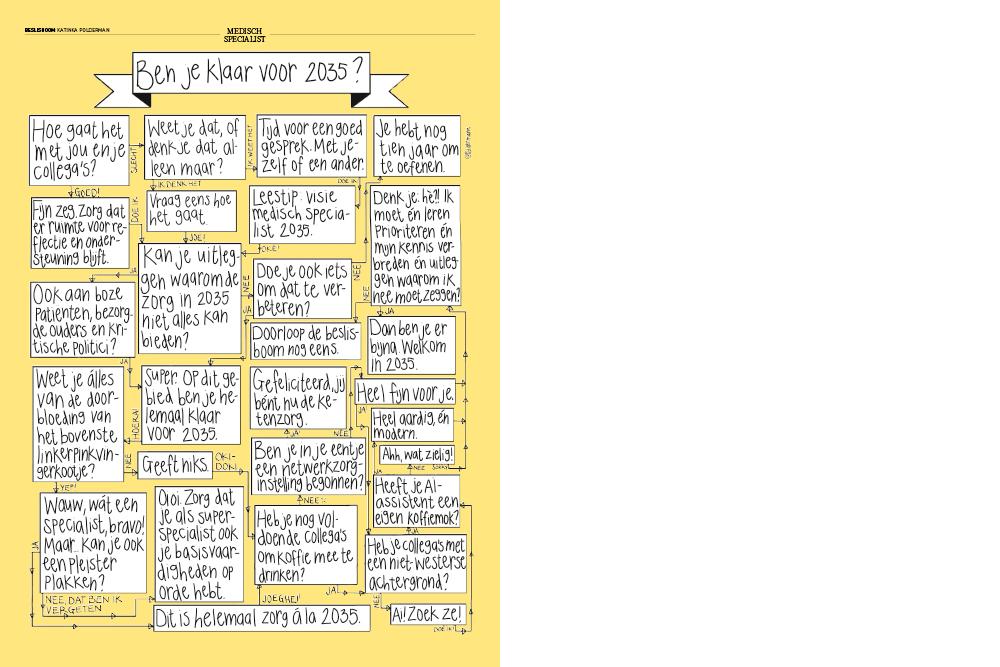 BESLISBOOM KATINKA POLDERMAN
MEDISCH
SPECIALIST
Ben je klaar voor 2035?
Hoe gaat het
met jou en je
collega's?
SLECHT
GOED!
Weet je dat, of
denk je dat al-
leen maar?
IK WEET HET
IK DENK HET
Tijd voor een goed
gesprek. Met je-
zelf of een ander.
DOE IK
Je hebt nog
tien jaar om
te oefenen.
Fijn zeg. Zorg dat
er ruimte voor re-
flectie en onder-
steuning blijft.
DOE IK
Vraag eens hoe
het gaat.
JOE!
Leestip: visie
medisch specia-
list 2035.
OKE!
Denk je: hè?! Ik
moet én leren
Prioriteren én
mijn kennis ver-
breden én uitleg-
gen waarom ik
nee moet zeggen?
JA
Kan je uitleg-
gen waarom de
zorg in 2035
niet alles kan
bieden?
JA
NEE
Doe je ook iets
om dat te ver-
beteren?
NEE
NEE
JA
Ook aan boze
patiënten, bezorg-
de ouders en kri-
tische politici?
JA
Doorloop de beslis-
boom nog eens.
Dan ben je er
bijna. Welkom
in 2035.
Weet je álles
van de door-
bloeding van
het bovenste
linkerpinkvin-
gerkootje?
HOERA!
NEE
YEP!
Super. Op dit ge-
bied ben je he-
lemaal klaar
voor 2035.
Gefeliciteerd, jij
bént nu de ke-
tenzorg.
JA!
NEE
Heel fijn voor je.
JA!
Heel aardig, én
modern.
Ahh, wat zielig!
NEE
JA
Geeft niks.
OKI-
DOKI
Ben je in je eentje
een netwerkzorg-
instelling begonnen?
NEE
Heeft je AI-
assistent een
eigen koffiemok?
JA
Wauw, wát een
specialist, bravo!
Maar... kan je ook
een pleister
plakken?
JA
NEE, DAT BEN IK
VERGETEN
Oioi. Zorg dat
je als super-
specialist ook
je basisvaar-
digheden op
orde hebt.
JOEGHEI!
Heb je nog vol-
doende collega's
om koffie mee te
drinken?
JA!
Heb je collega's met
een niet-Westerse
achtergrond?
NEE
Ai! Zoek ze!
DOE IK!
Dit is helemaal zorg á la 2035.